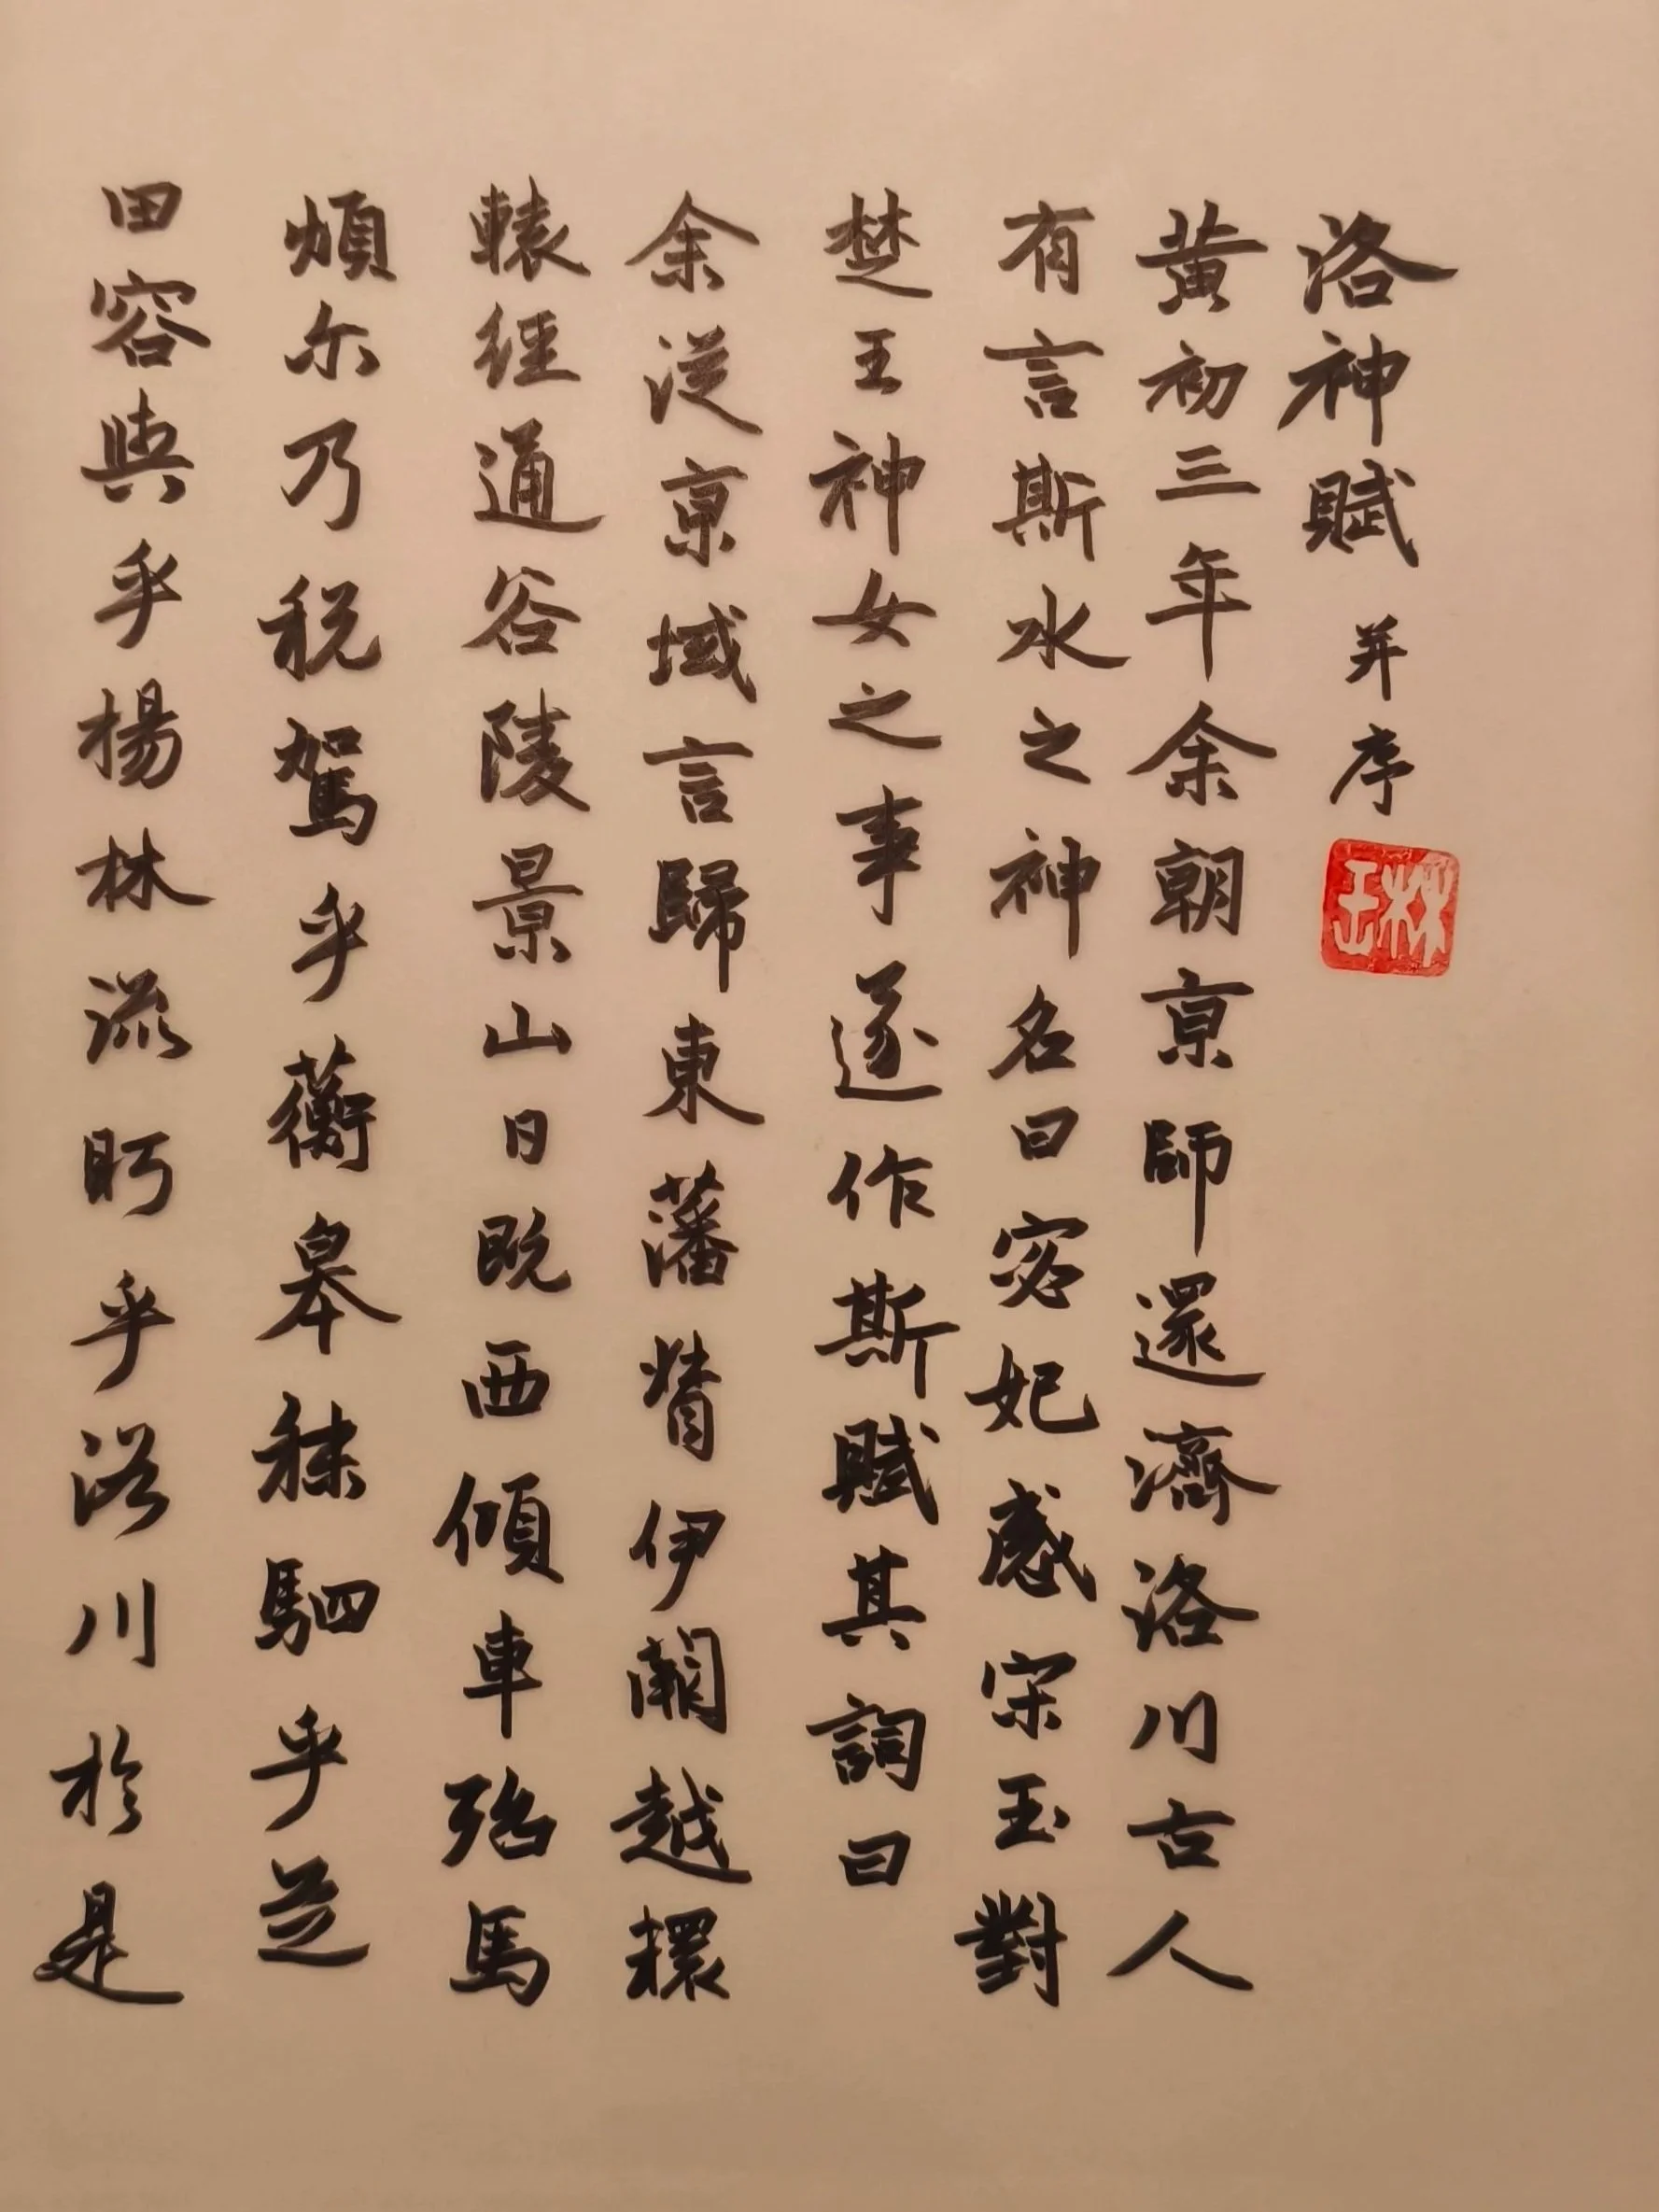 洛神賦 并序
黃初三年余朝京師還濟洛川古人
有言斯水之神名曰宓妃感宋玉對
楚王神女之事遂作斯賦其詞曰
余從京域言歸東藩背伊闕越轘
轅經通谷陵景山日既西傾車殆馬
煩尔乃税駕乎蘅皋秣駟乎芝
田容與乎楊林流眄乎洛川於是